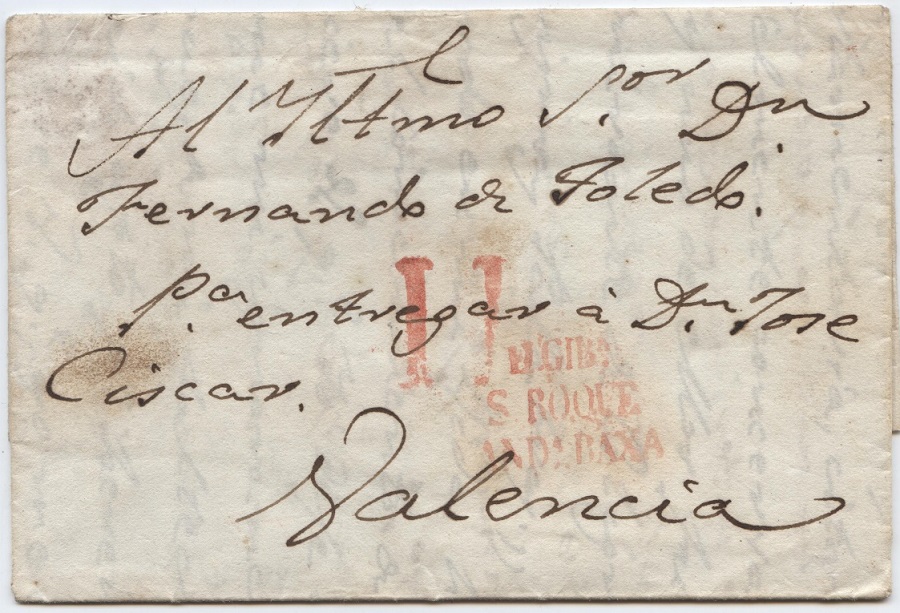 Al Illtmo S.or Dn.
Fernando de Toledo.
pa. entregar à Dn. Jose
Ciscar.
Valencia
11
S. ROQUE
ANDA BAXA